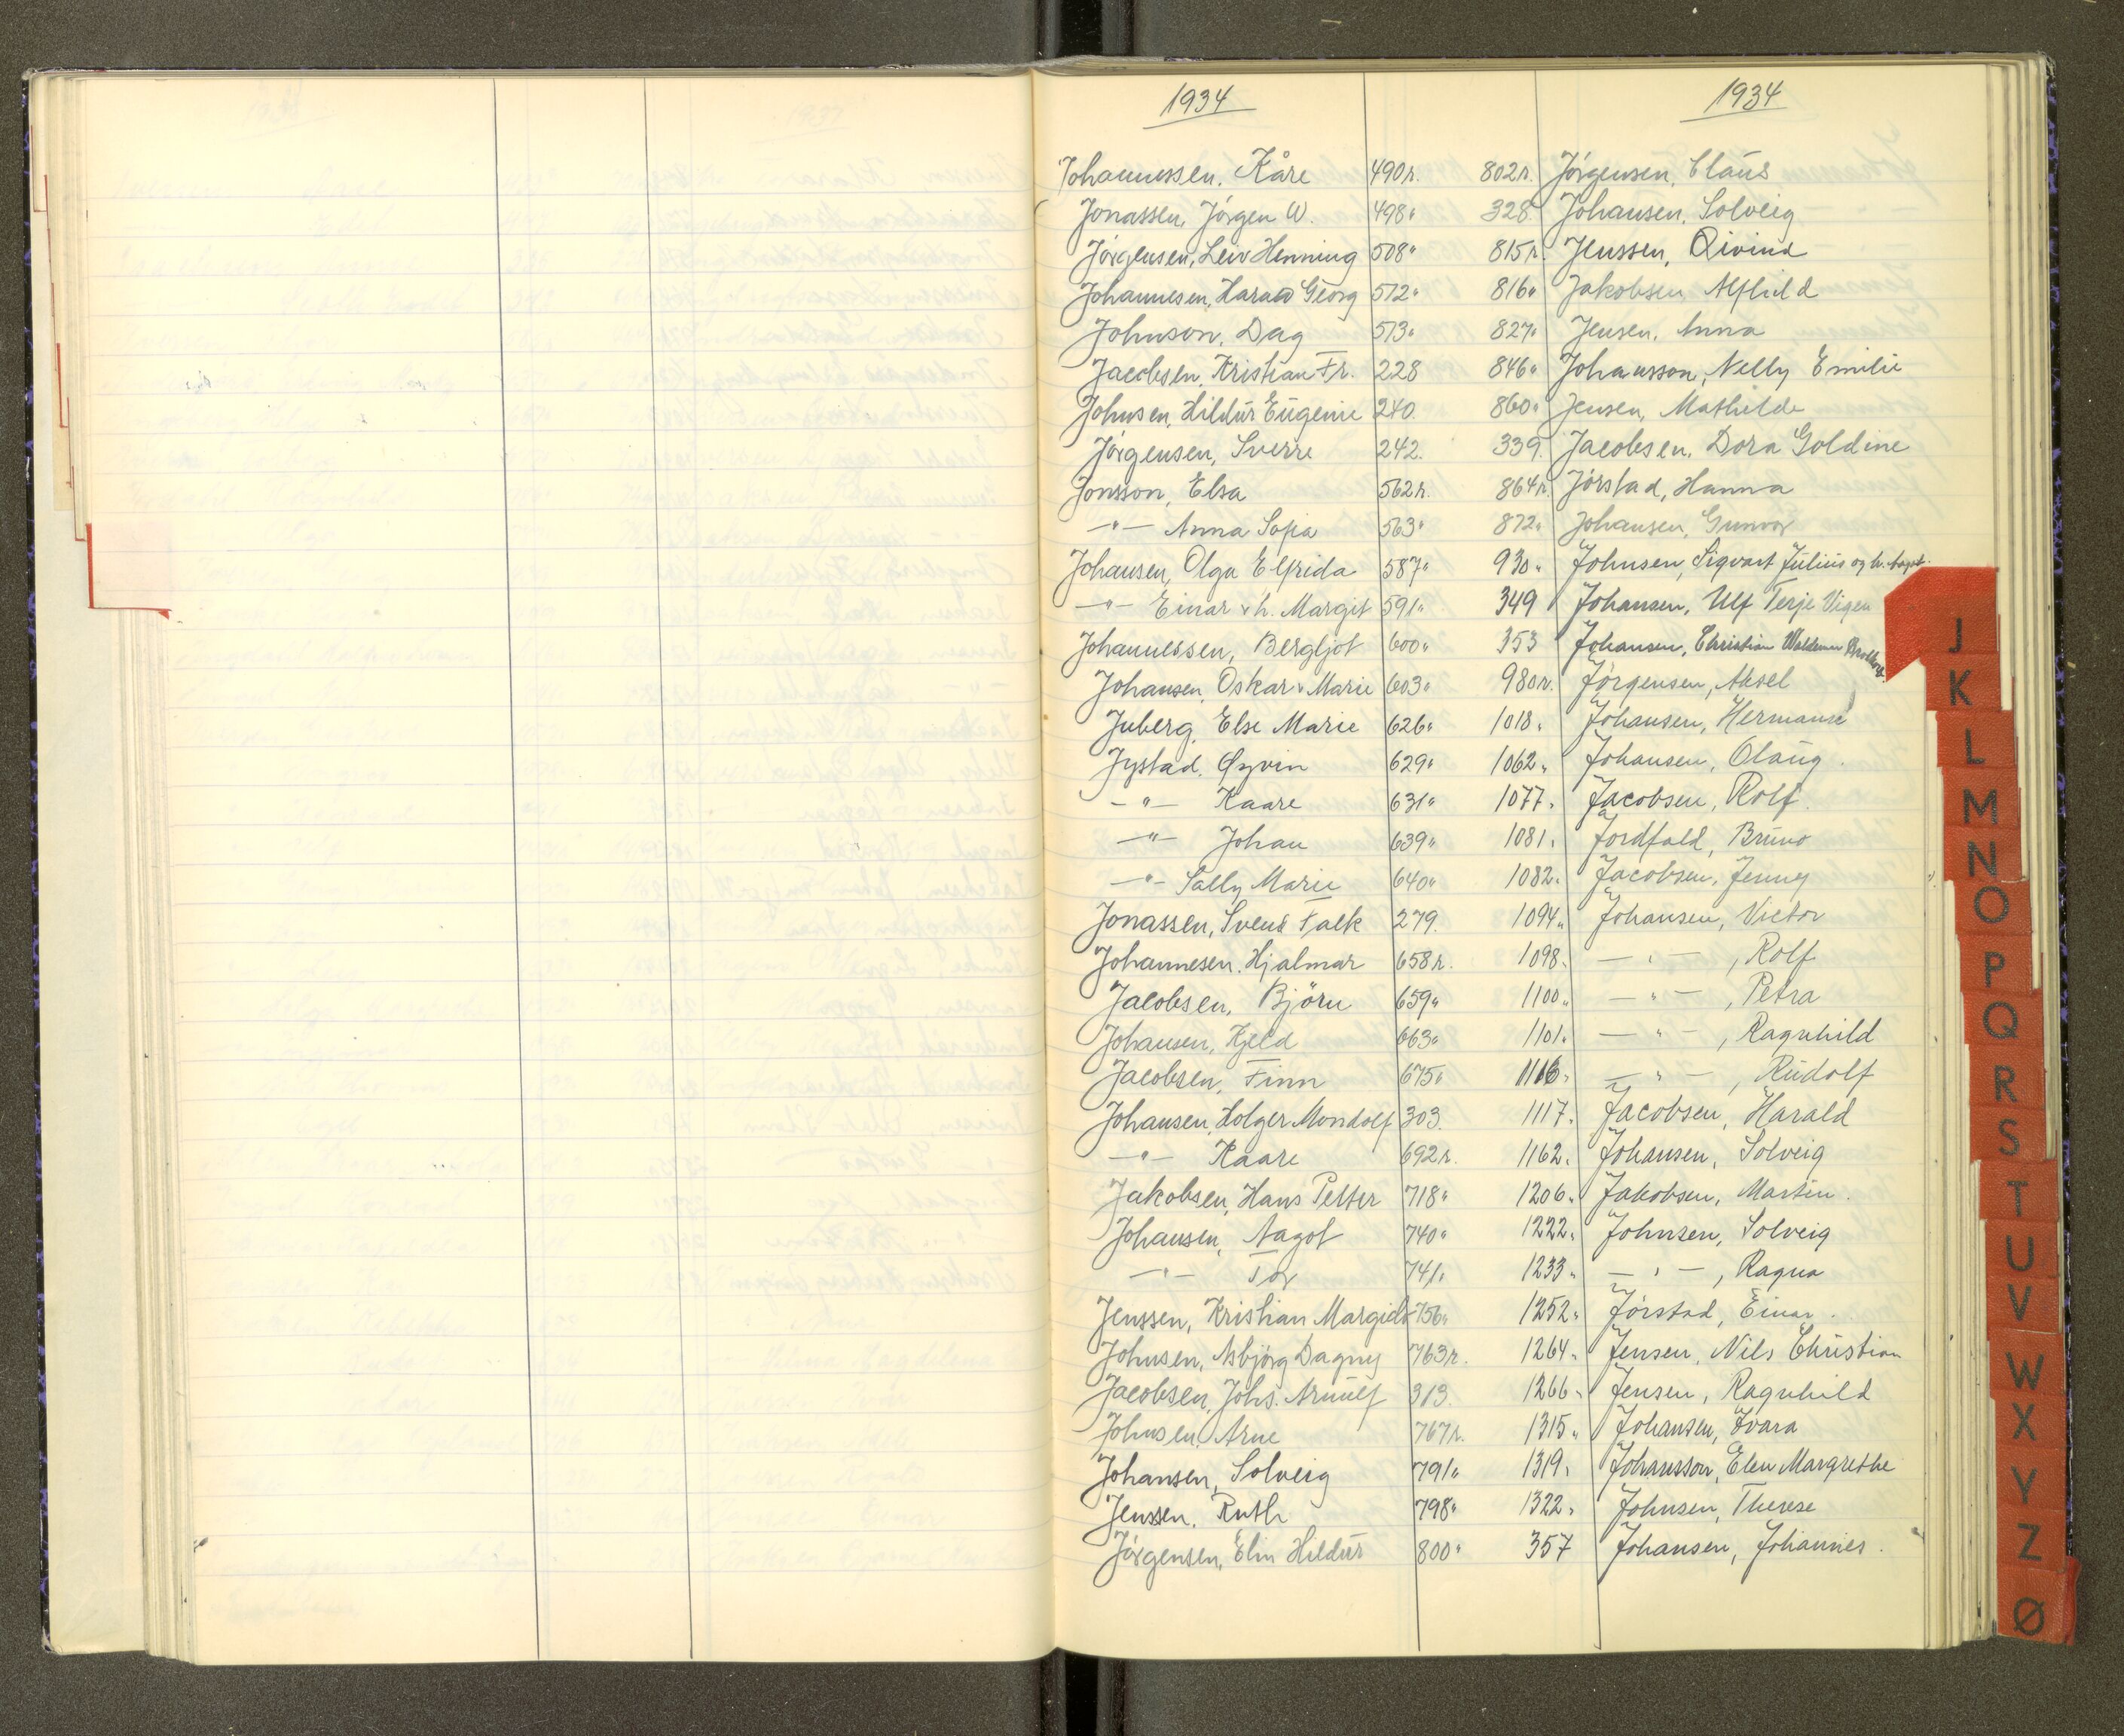 1934
Johannessen, Kåre 490r.
Jonassen, Jörgen W. 498"
Jörgensen, Leiv Henning 508"
Johannesen, Harald Georg 512"
Johnson, Dag 513"
Jacobsen, Kristian Fr. 228
Johnsen, Hildur Eugenie 240
Jörgensen, Sverre 242.
Jonsson, Elsa 562r.
—"— Anna Sofia 563"
Johansen, Olga Elfrida 587"
—"— Einar & h. Margit 591"
Johannessen, Bergljot 600"
Johansen, Oskar & Marie 603"
Juberg, Else Marie 626"
Jystad, Øyvin 629"
—"— Kaare 631"
—"— Johan 639"
—"— Sally Marie 640"
Jonassen, Svend Falk 279.
Johannesen, Hjalmar 658r.
Jacobsen, Björn 659"
Johansen, Kjeld 663"
Jacobsen, Finn 675"
Johansen, Holger Mondolf 303.
—"— Kaare 692r.
Jakobsen, Hans Petter 718"
Johansen, Aagot 740"
—"— Tor 741"
Jenssen, Kristian Margido 756"
Johnsen, Asbjörg Dagny 763r.
Jacobsen, Johs. Arnulf 313.
Johnsen, Arne 767r.
Johansen, Solveig 791"
Jenssen, Ruth 798"
Jörgensen, Elin Hildur 800"
1934
802r. Jörgensen, Claus
328 Johansen, Solveig
815r. Jenssen, Oivind
816" Jakobsen, Alfhild
827" Jensen, Anna
846" Johansson, Nelly Emilie
860" Jensen, Mathilde
339. Jacobsen, Dora Goldine
864r. Jörstad, Hanna
872" Johansen, Gunvor
930" Johnsen, Sigvart Julius og h.
349 Johansen, Ulf Terje Vigen
353 Johansen, Christian Waldemar
980r. Jörgensen, Aksel
1018" Johansen, Hermanse
1062" Johansen, Olaug.
1077" Jacobsen, Rolf.
1081" Jordfald, Bruno
1082" Jacobsen, Jenny
1094" Johansen, Victor
1098" —"—, Rolf
1100" —"—, Petra
1101" —"—, Ragnhild
1116" —"—, Rudolf
1117" Jacobsen, Harald
1162" Johansen, Solveig
1206" Jakobsen, Martin.
1222" Johnsen, Solveig
1233" —"—, Ragna
1252" Jörstad, Einar.
1264" Jensen, Nils Christian
1266" Jensen, Ragnhild
1315" Johansen, Ivara
1319" Johansson, Elen Margrethe
1322" Johnsen, Therese
357 Johansen, Johannes.
J
K
L
M
N
O
P
Q
R
S
T
U
V
W
X
Y
Z
Ø